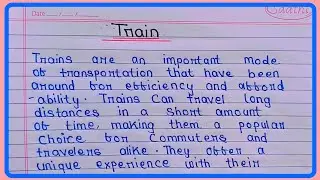 Date
Saathi
Train
Trains are an important mode
of transportation that have been
around for efficiency and afford
-ability. Trains can travel long
distances in a short amount
of time, making them a popular
choice for commuters and
travelers alike. They offer a
unique experience with their